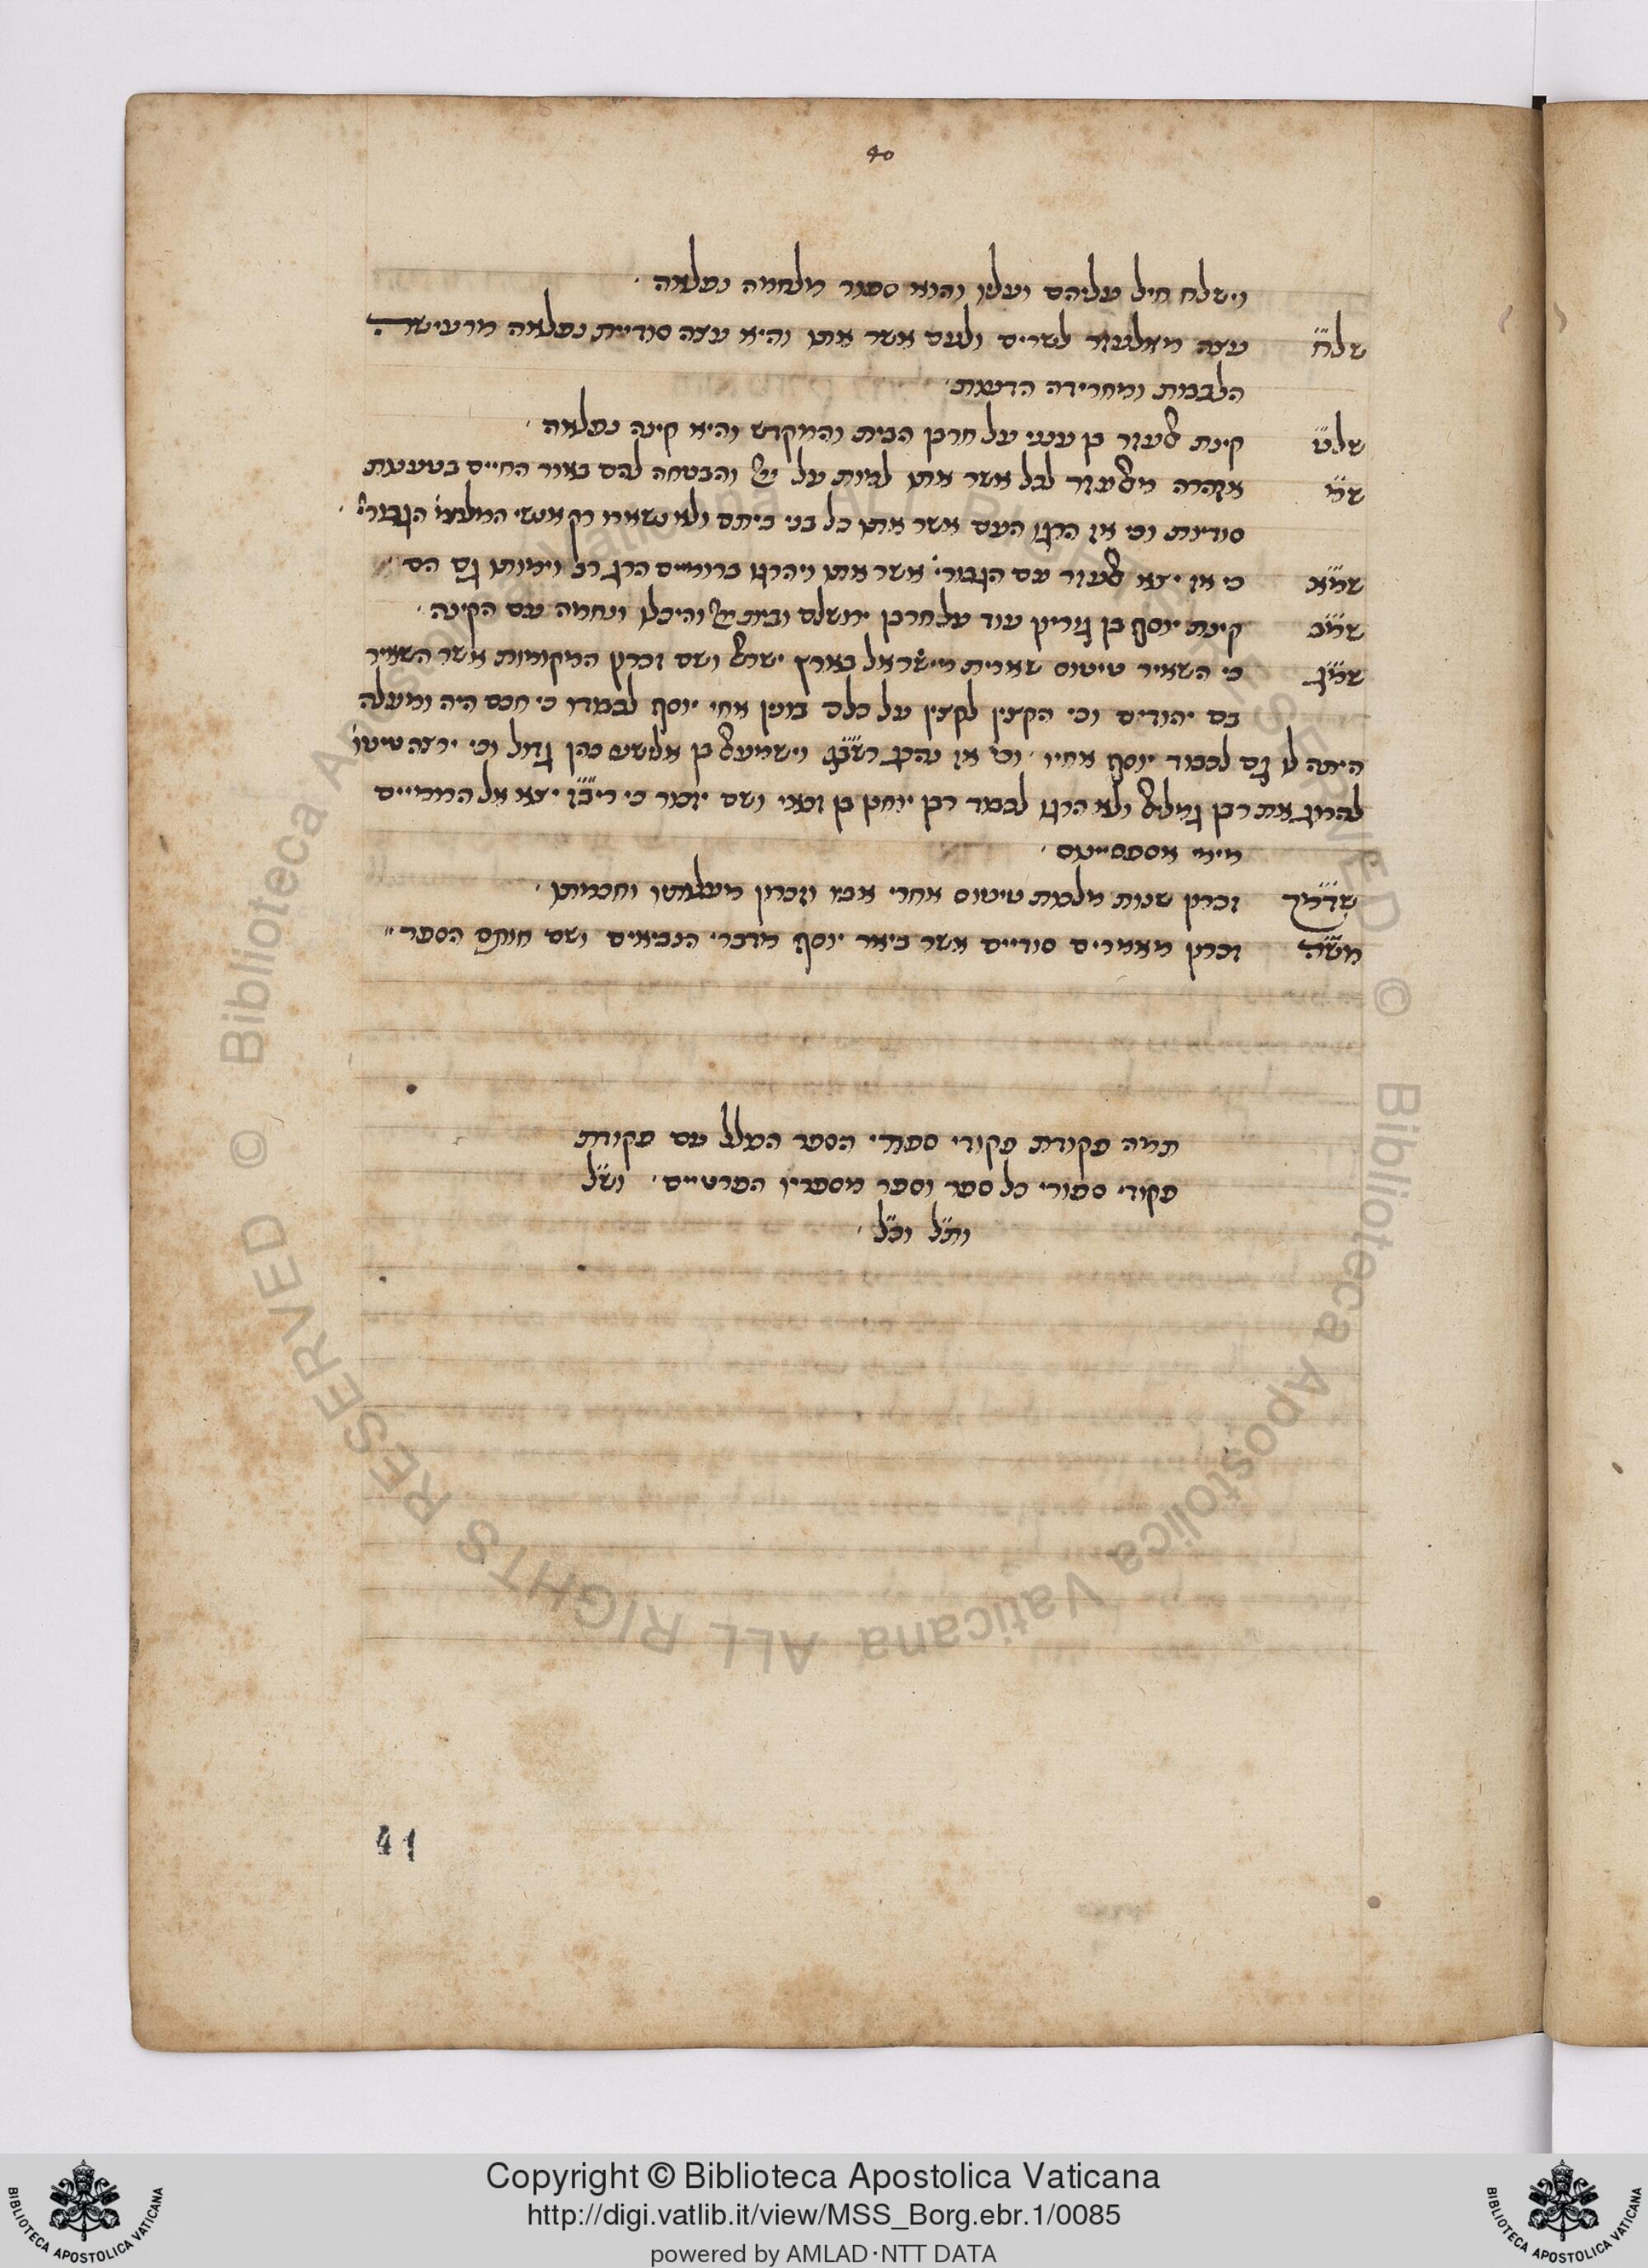 40
וישלח חיל עליהם ועלו והוא ספור מלחמה נפלאה
שלח עצה מאלעזר לשרים ולעם אשר אתו והיא עצה סודיית נפלאה מרעישה
הלבבות ומחרידה הדעות
שלט קינת אלעזר בן ענני על חרבן הבית והמקדש והיא קינה נפלאה
שמ אזהרה מאלעזר לכל אשר אתו למות על והבטחה להם באור החיים בטענות
סודיות וכי אז הרגו העם אשר אתו כל בני ביתם ולא נשארו רק אנשי המלחמ' הגבורי'
שמא כי אז יצא אלעזר עם הגבורי' אשר אתו ויהרגו ברומיים הרג רב וימותו גם הם
שמב קינת יוסף בן גוריון עוד על חרבן ירושלם ובית והיכלו ונחמה עם הקינה
שמג כי השאיר טיטוס שארית מישראל בארץ ישראל ושם זכרון המקומות אשר השאיר
בם יהודים וכי הקצין לקצין על כלם בוניו אחי יוסף לבמדו כי חכם היה ומעלה
היתה לו גם לכבוד יוסף אחיו וכי אז נהרג רשבג וישמעאל בן אלישע כהן גדול וכי ירצה טיטו'
להרוג את רבן גמליאל ולא הרגו לכבוד רבן יוחנן בן זכאי ושם יזכור כי ריבז יצא אל הרומיים
מימי אספסיינוס
שדמ זכרון שנות מלכות טיטוס אחרי אביו וזכרון מעלותיו וחכמותו
משה זכרון מאמרים סודיים אשר ביאר יוסף מדברי הנביאים ושם חותם הספר
תמה פקודת פקודי ספורי הספר הכללי עם פקודת
פקודי ספורי כל ספר וספר מספריו הפרטיים וש"ל
ות"ל וכ"ל
41
© Biblioteca Apostolica Vaticana ALL RIGHTS RESERVED
© Biblioteca Apostolica Vaticana ALL RIGHTS RESERVED
Copyright © Biblioteca Apostolica Vaticana
http://digi.vatlib.it/view/MSS_Borg.ebr.1/0085
powered by AMLAD·NTT DATA
BIBLIOTECA APOSTOLICA VATICANA
BIBLIOTECA APOSTOLICA VATICANA